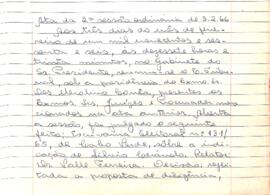 Ata da 2ª sessão ordinária de 3.2.66
Aos três dias do mês de feve-
reiro de um mil novecentos e ses-
senta e seis, às dezessete horas e
trinta minutos, no Gabinete do
Sr. Presidente, reuniu-se o Tribu-
nal, sob a presidência do Exmo. Sr.
Des. presentes os
Exmos. Srs. Juízes e Procurador men-
cionados na ata anterior. Aberta
a sessão, foi julgado o seguinte
feito: Eleitoral nº 131/
65, de sobre a indi-
cação de Relator:
Des. Ferreira. Decisão: Acei-
tada a proposta de diligência,